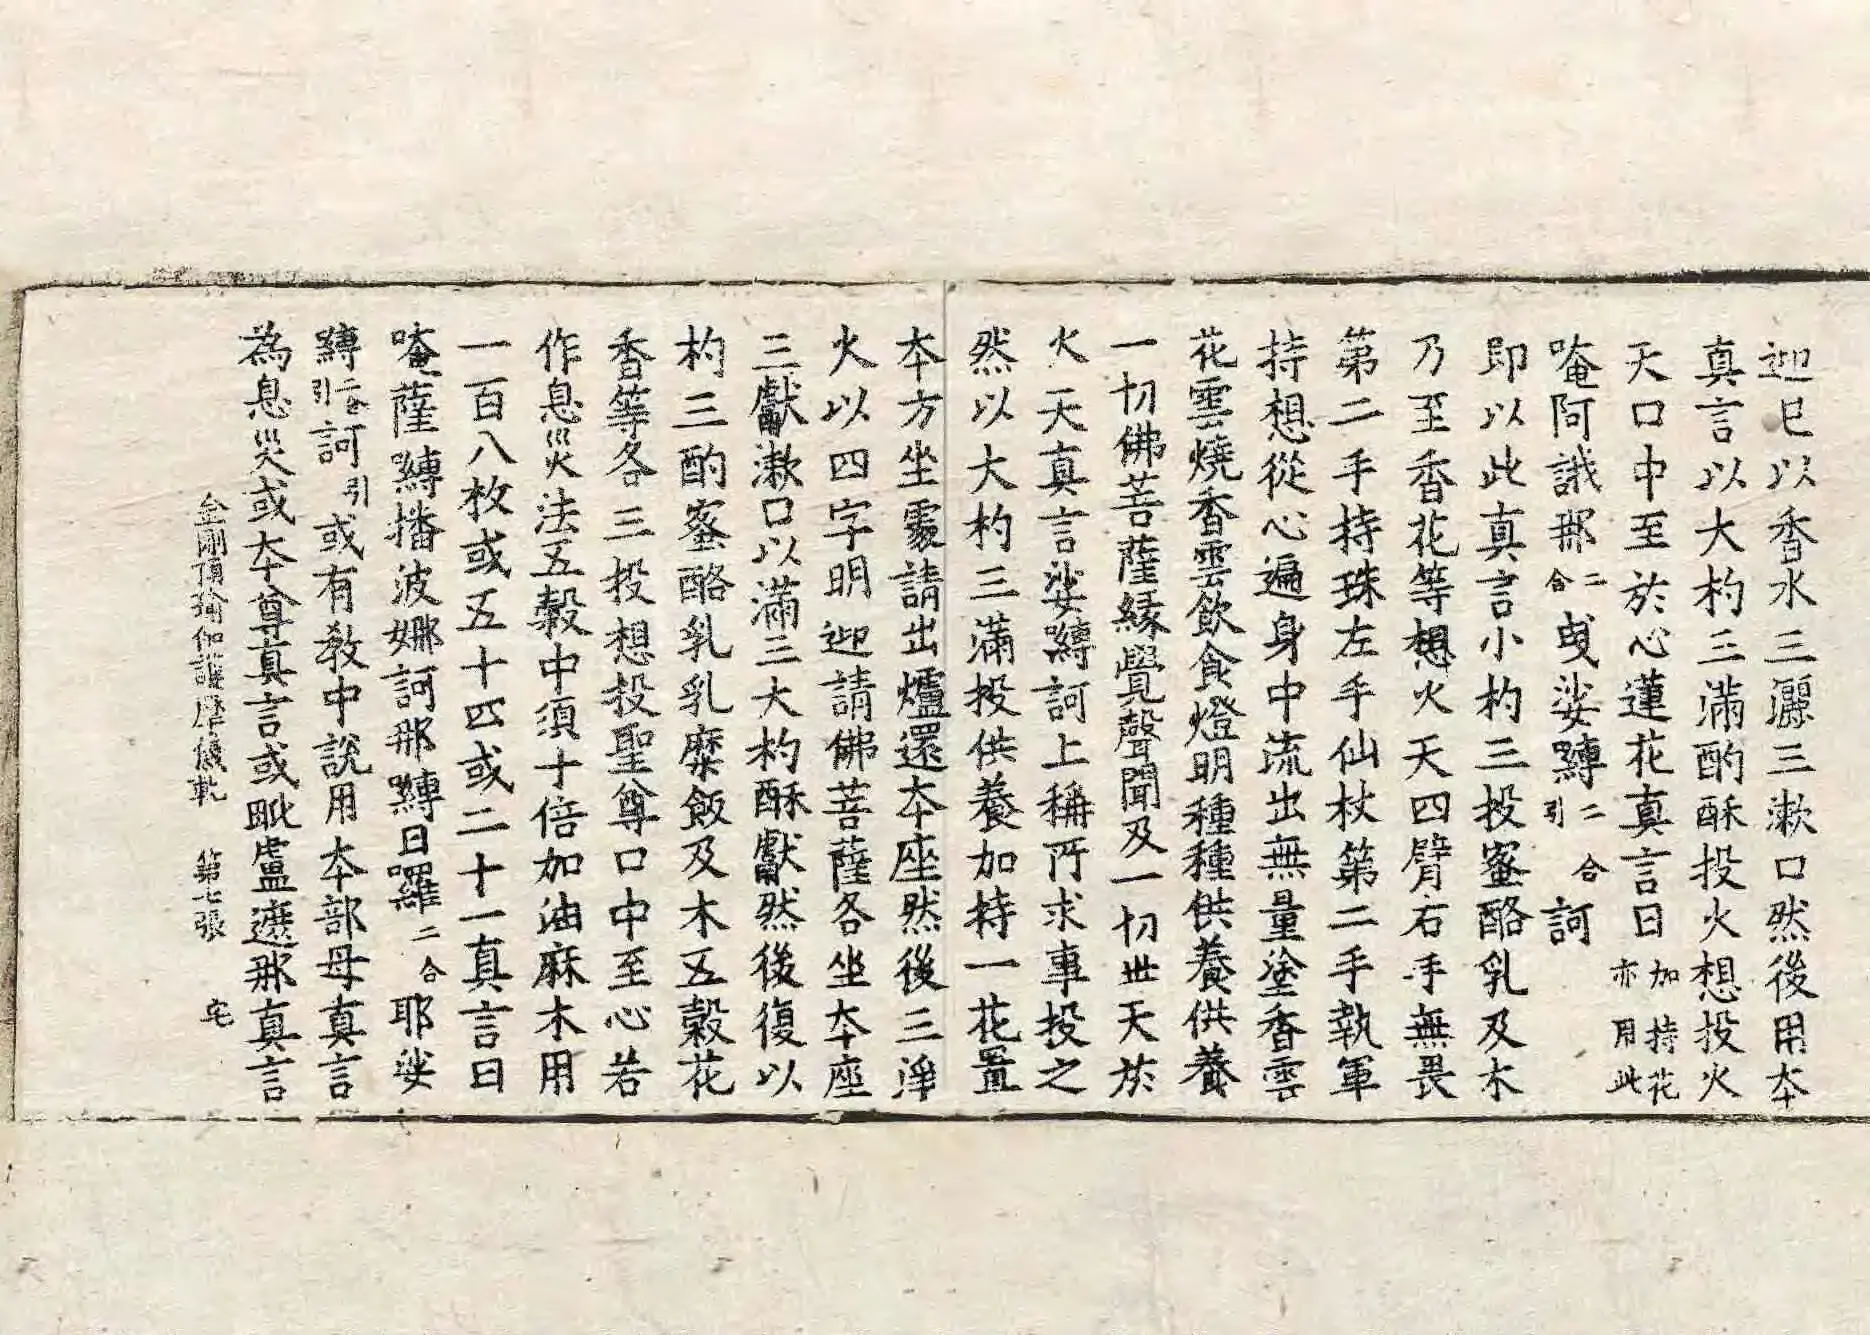 迎已以香水三灑三漱口然後用本
真言以大杓三滿酌酥投火想投火
天口中至於心蓮花真言曰加持花亦用此
唵阿誐那二合曳娑嚩二合引訶
即以此真言小杓三投蜜酪乳及木
乃至香花等想火天四臂右手無畏
第二手持珠左手仙杖第二手執軍
持想從心遍身中流出無量塗香雲
花雲燒香雲飲食燈明種種供養供養
一切佛菩薩緣覺聲聞及一切世天於
火天真言娑嚩訶上稱所求事投之
然以大杓三滿投供養加持一花置
本方坐處請出爐還本座然後三淨
火以四字明迎請佛菩薩各坐本座
三獻漱口以滿三大杓酥獻然後復以
杓三酌蜜酪乳乳糜飯及木五穀花
香等各三投想投聖尊口中至心若
作息災法五穀中須十倍加油麻木用
一百八枚或五十四或二十一真言曰
唵薩嚩播波娜訶那嚩日囉二合耶娑
嚩二合引訶引或有教中說用本部母真言
為息災或本尊真言或毗盧遮那真言
金剛頂瑜伽護摩儀軌　第七張　宅